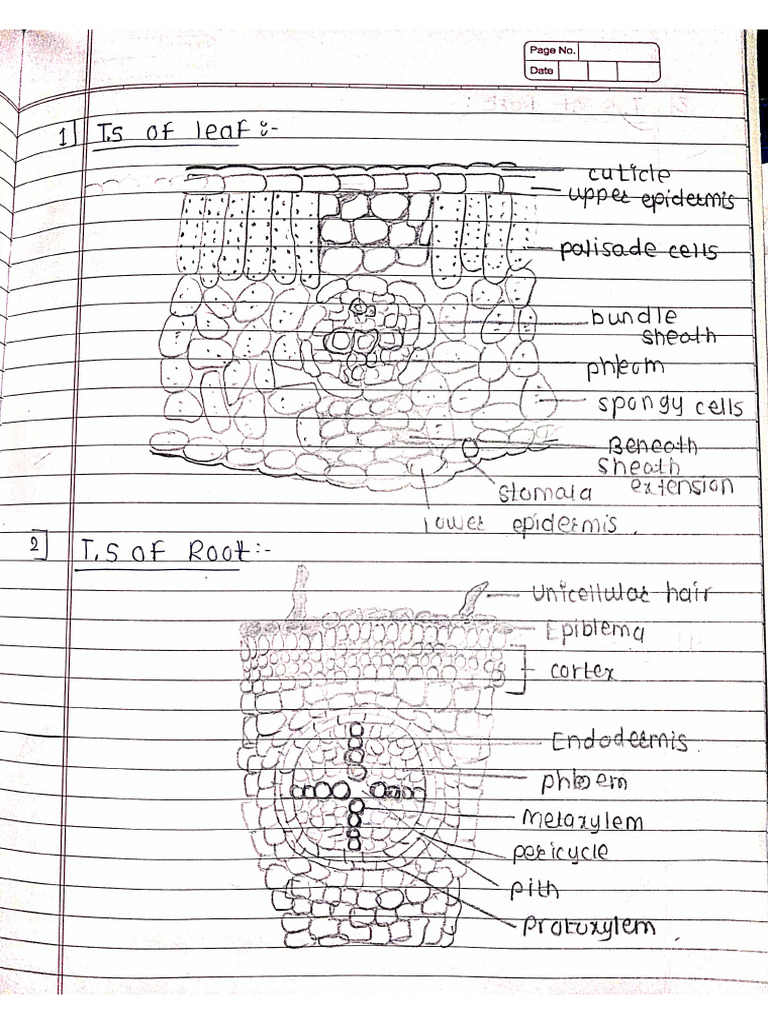 Page No.
Date
1] T.S OF leaf :-
cuticle
upper epidermis
palisade cells
bundle
sheath
phleom
spongy cells
Beneath
sheath
extension
stomata
lower epidermis.
2] T.S OF ROOt :-
unicellular hair
Epiblema
cortex
Endodermis.
phloem
Metaxylem
pericycle
pith
protoxylem.